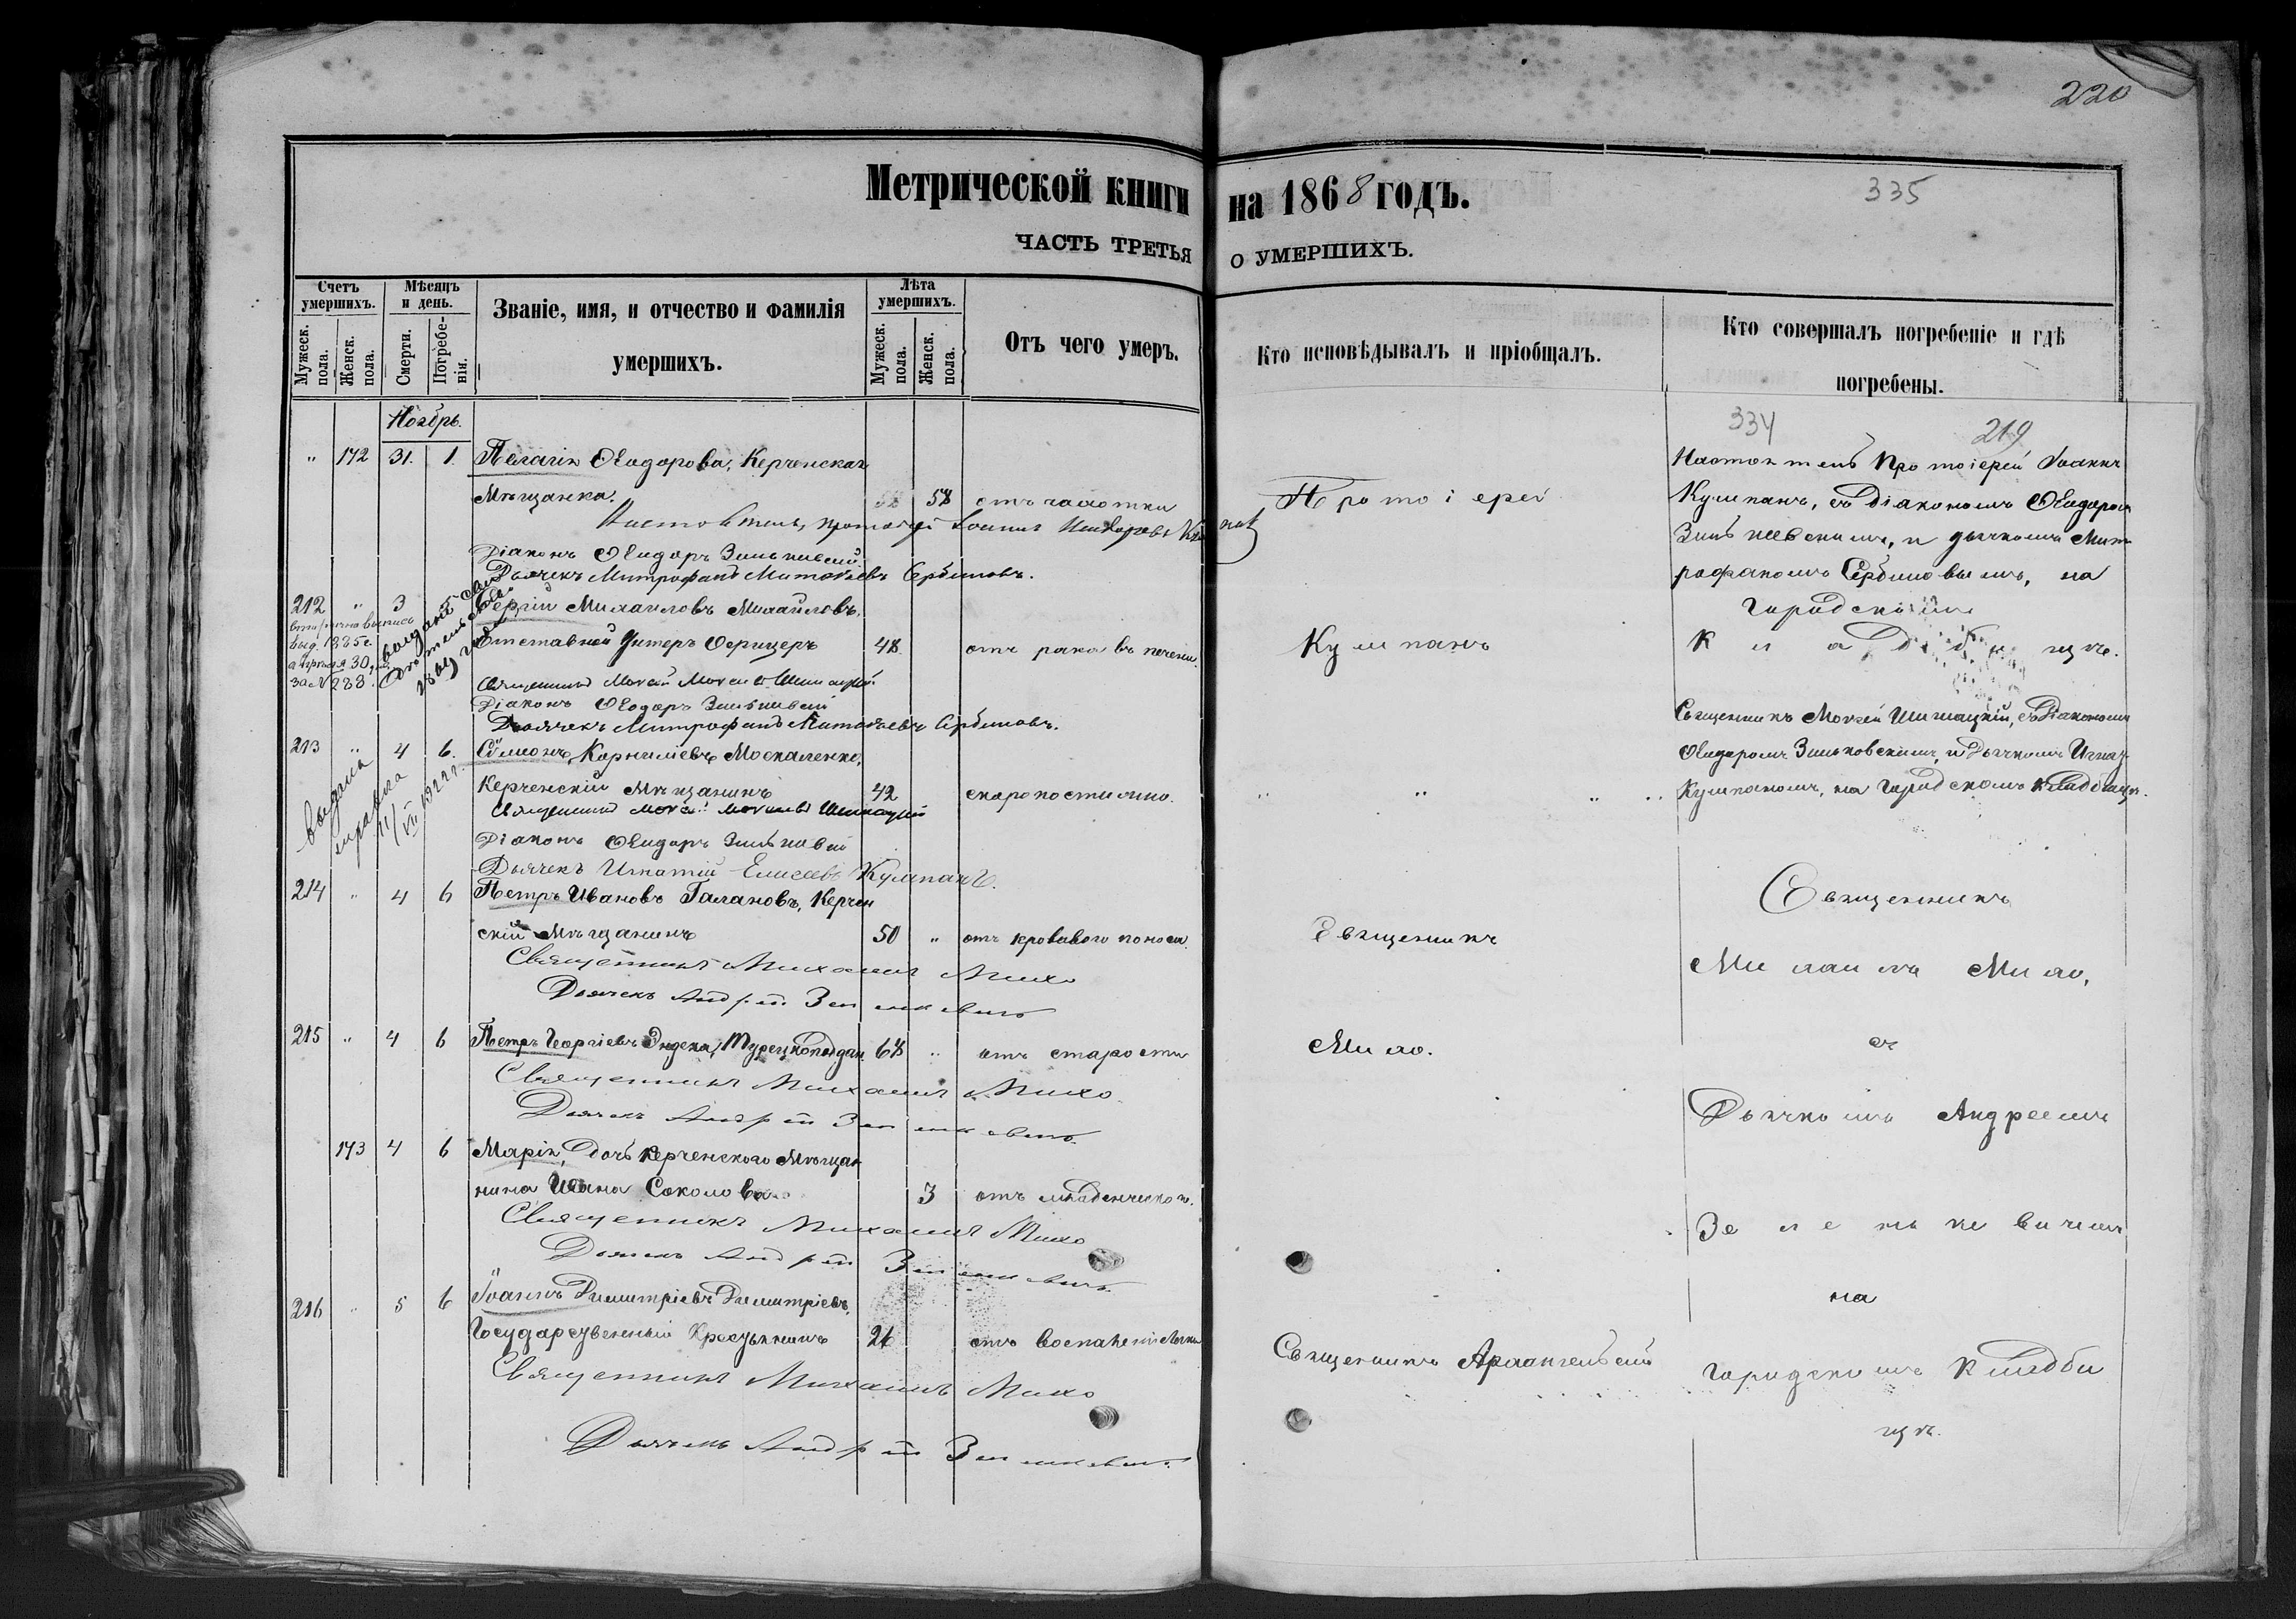 220
Метрической книги на 1868 годъ.
335
ЧАСТЬ ТРЕТЬЯ О УМЕРШИХЪ.
Счетъ умершихъ.
Мѣсяцъ и день.
Званіе, имя, и отчество и фамилія умершихъ.
Лѣта умершихъ.
Отъ чего умеръ.
Кто исповѣдывалъ и пріобщалъ.
Кто совершалъ погребеніе и гдѣ погребены.
Мужеск. пола.
Женск. пола.
Смерти.
Погребенія.
Мужеск. пола.
Женск. пола.
Ноябрь.
334
219
" 172 31. 1. Пелагія Ѳеодорова, Керченская
Мѣщанка. 58 отъ чахотки
Протоіерей
Настоятель Протоіерей Іоаннъ
Кумпанъ, съ Діакономъ Ѳеодоромъ
Зинькевскимъ, и дьячкомъ Мит
рофаномъ Сербиновымъ, на
городскомъ
кладбищѣ.
Настоятель, протоіерей Іоаннъ
Діаконъ Ѳеодоръ Зинькевскій
Дьячекъ Митрофанъ Матвѣевъ Сербиновъ.
212 " 3 5 Сергій Михаиловъ Михайловъ,
Отставной Унтеръ Офицеръ 48 отъ рака въ печени.
Кумпанъ
вторично выпись
выд. 1885 г.
апрѣля 30 дня
за № 288
Священникъ Моѵсей Шишацкій
Діаконъ Ѳеодоръ Зинькевскій
Дьячекъ Митрофанъ Матвѣевъ Сербиновъ.
213 " 4 6. Сѷмеонъ Корниліевъ Москаленко,
Керченскій Мѣщанинъ 42 скоропостижно.
" " " "
Священникъ Моѵсей Шишацкій, съ Діакономъ
Ѳеодоромъ Зиньковскимъ, и Дьячкомъ Игнат.
Кумпаномъ, на Городскомъ Кладбищѣ.
выдана
справка
11/VII 1922 г.
Священникъ Моѵсей Шишацкій
Діаконъ Ѳеодоръ Зинькевскій
Дьячекъ Игнатій Елисеевъ Кумпанъ.
214 " 4 6 Петръ Ивановъ Галановъ, Керчен
скій Мѣщанинъ 50 " отъ кроваваго поноса.
Священникъ
Священникъ Михаилъ Михо
Дьячекъ Андрей Зеленкевичъ
215 " 4 6 Петръ Георгіевъ Турецкоподдан. 68 " отъ старости
Михо.
Священникъ Михаилъ Михо
Дьячекъ Андрей Зеленкевичъ
173 4 6 Марія, дочь Керченскаго Мѣщан
нина Ивана Соколова 3 отъ младенческой.
Священникъ Михаилъ Михо
Дьячекъ Андрей Зеленкевичъ
216 " 5 6 Іоаннъ Димитріевъ Димитріевъ,
Государственный Крестьянинъ 26 отъ воспаленія
Священникъ Архангельскій
Священникъ Михаилъ Михо
Дьячекъ Андрей Зеленкевичъ
Священникъ
Михаилъ Михо,
съ
Дьячкомъ Андреемъ
Зеленькевичемъ
на
городскомъ Кладби
щѣ.